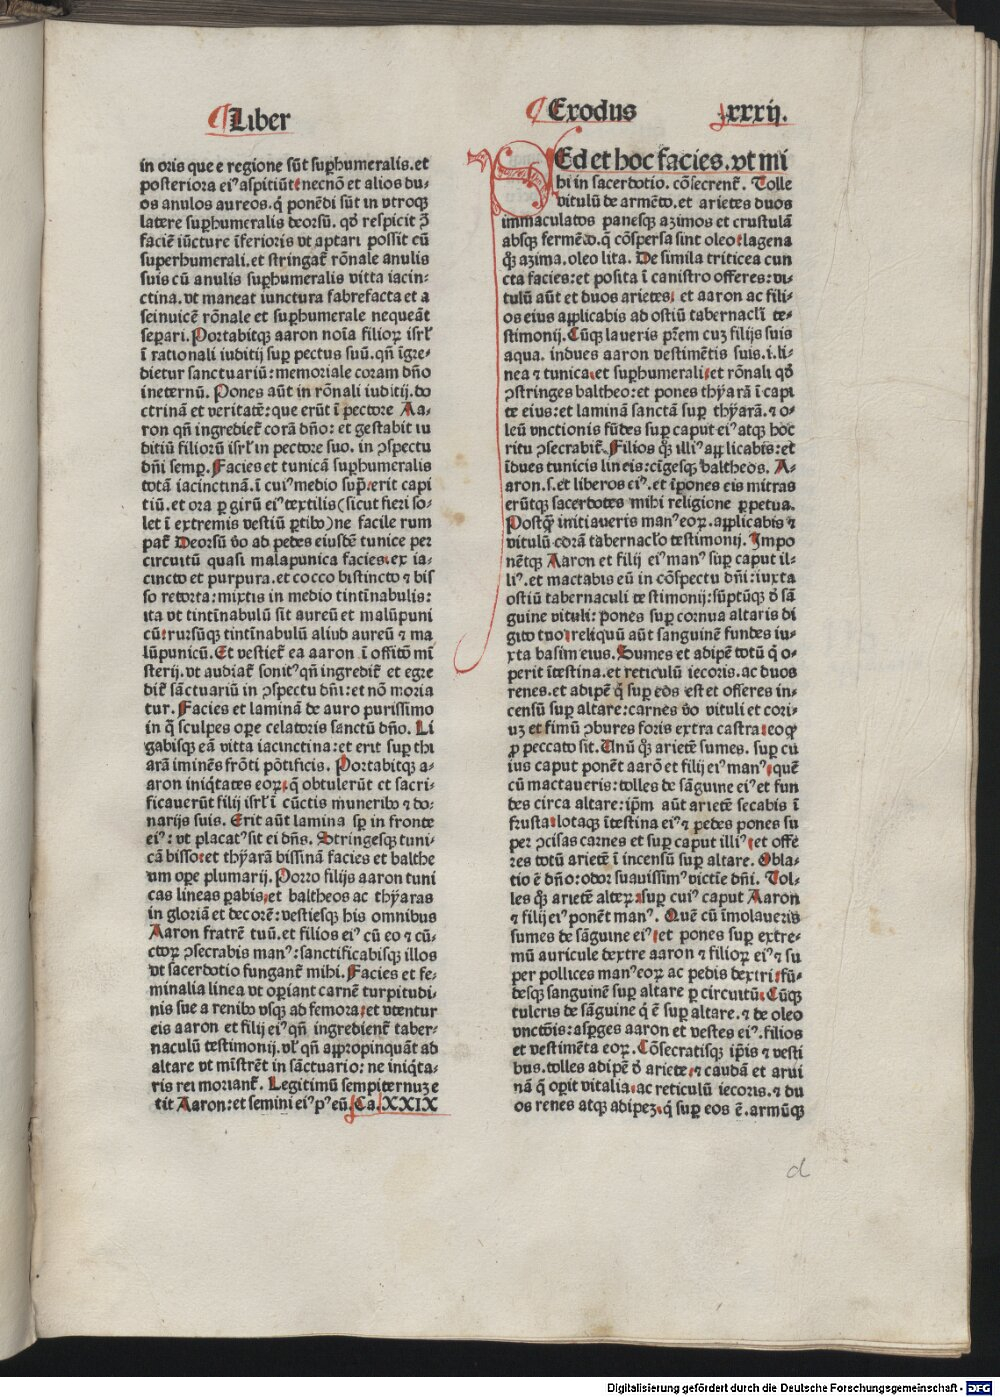 Liber
Exodus
xxxij.
in oris que e regione sūt suꝑhumeralis. et
posteriora ei⁹ aspitiūt: necnō et alios du-
os anulos aureos. q̄ ponēdi sūt in vtroqꝫ
latere suꝑhumeralis deorsū. qd̓ respicit ꝯ̄
faciē iūcture īferioris vt aptari possit cū
superhumerali. et stringat᷑ rōnale anulis
suis cū anulis suꝑhumeralis vitta iacin-
ctina. vt maneat iunctura fabrefacta et a
seinuicē rōnale et suꝑhumerale nequeāt
seꝑari. Portabitqꝫ aaron noīa filioꝝ isrl̓
ī rationali iuditij suꝑ pectus suū. qn̄ īgre-
dietur sanctuariū: memoriale coram dn̄o
ineternū. Pones aūt in rōnali iuditij. do
ctrinā et veritatē: que erūt ī pectore Aa-
ron qn̄ ingrediet᷑ corā dn̄o: et gestabit iu
ditiū filiorū isrl̓ in pectore suo. in ꝯspectu
dn̄i semꝑ. Facies et tunicā suꝑhumeralis
totā iacinctinā. ī cui⁹ medio supͣ. erit capi
tiū. et ora ꝑ girū ei⁹ textilis (sicut fieri so-
let ī extremis vestiū ꝑtibꝰ) ne facile rum
pat᷑. Deorsū v̓o ad pedes eiusdē tunice per
circuitū quasi malapunica facies. ex ia-
cincto et purpura. et cocco bistincto ⁊ bis
so retorta: mixtis in medio tintīnabulis:
ita vt tintīnabulū sit aureū et malūpuni
cū: rursūqꝫ tintīnabulū aliud aureū ⁊ ma
lūpunicū. Et vestiet᷑ ea aaron ī offitō mī
sterij. vt audiat᷑ sonit⁹ qn̄ ingredit᷑ et egre
dit᷑ sāctuariū in ꝯspectu dn̄i: et nō moria
tur. Facies et laminā de auro purissimo
in q̄ sculpes oꝑe celatoris sanctū dn̄o. Li
gabisqꝫ eā vitta iacinctina: et erit suꝑ thi
arā iminēs frōti pōtificis. Portabitqꝫ a-
aron iniq̇tates eoꝝ. q̄ obtulerūt et sacri-
ficauerūt filij isrl̓ ī cūctis muneribꝰ ⁊ do-
narijs suis. Erit aūt lamina sꝑ in fronte
ei⁹: vt placat⁹ sit ei dn̄s. Stringesqꝫ tuni-
cā bisso: et thyarā bissinā facies et balthe
um oꝑe plumarij. Porro filijs aaron tuni
cas lineas ꝑabis. et baltheos ac thyaras
in gloriā et decorē: vestiesqꝫ his omnibus
Aaron fratrē tuū. et filios ei⁹ cū eo ⁊ cū-
ctoꝝ ꝯsecrabis man⁹: sanctificabisqꝫ illos
vt sacerdotio fungant᷑ mihi. Facies et fe-
minalia linea vt oꝑiant carnē turpitudi-
nis sue a renibꝰ vsqꝫ ad femora: et vtentur
eis aaron et filij ei⁹ qn̄ ingredient᷑ taber-
naculū testimonij. vl̓ qn̄ aꝓpropinquāt ad
altare vt mīstrēt in sāctuario: ne iniq̇ta-
ris rei moriant᷑. Legitimū sempiternuꝫ e
tit Aaron: et semini ei⁹ p⁹ eū. Ca. XXIX
SEd et hoc facies. vt mi
hi in sacerdotio. cōsecrent᷑. Tolle
vitulū de armēto. et arietes duos
immaculatos panesqꝫ azimos et crustulā
absqꝫ fermēto. q̄ cōspersa sint oleo: lagena
qꝫ̄ azima. oleo lita. De simila triticea cun
cta facies: et posita ī canistro offeres: vi-
tulū aūt et duos arietes. et aaron ac fili-
os eius aꝓplicabis ad ostiū tabernacl̓i te-
stimonij. Cūqꝫ laueris pr̄em cuꝫ filijs suis
aqua. indues aaron vestimētis suis. i. li-
nea ⁊ tunica. et suꝑhumerali. et rōnali qd̓
ꝯstringes baltheo: et pones thyarā ī capi
te eius: et laminā sanctā suꝑ thyarā. ⁊ o-
leū vnctionis fūdes suꝑ caput ei⁹ atqꝫ hoc
ritu ꝯsecrabit᷑. Filios qꝫ̄ illi⁹ aꝓplicabis: et
īdues tunicis lineis: cīgesqꝫ baltheos. A-
aron. s. et liberos ei⁹. et īpones eis mitras
erūtqꝫ sacerdotes mihi religione ꝑpetua.
Postqꝫ̄ initiaveris man⁹ eoꝝ. aꝓplicabis ⁊
vitulū corā tabernacl̓o testimonij. Impo
nētqꝫ Aaron et filij ei⁹ man⁹ suꝑ caput il-
li⁹. et mactabis eū in cōspectu dn̄i: iuxta
ostiū tabernaculi testimonij: sūptūqꝫ d̓ sā
guine vituli: pones suꝑ cornua altaris di
gito tuo: reliquū aūt sanguinē fundes iu-
xta basim eius. Sumes et adipē totū q̄ o-
perit ītestina. et reticulū iecoris. ac duos
renes. et adipē q̄ suꝑ eos est et offeres in-
censū suꝑ altare: carnes v̓o vituli et cori-
uꝫ et fimū ꝯbures foris extra castra: eoqd̓
ꝓ peccato sit. Unū qꝫ̄ arietē sumes. suꝑ cu
ius caput ponēt aarō et filij ei⁹ man⁹. quē
cū mactaueris: tolles de sāguine ei⁹ et fun
des circa altare: ip̄m aūt arietē secabis ī
frusta: lotaqꝫ ītestina ei⁹ ⁊ pedes pones su
per ꝯcisas carnes et suꝑ caput illi⁹. et offe
res totū arietē ī incensū suꝑ altare. Obla-
tio ē dn̄o: odor suauissim⁹ victīe dn̄i. Tol-
les qꝫ̄ arietē alteꝝ: suꝑ cui⁹ caput Aaron
⁊ filij ei⁹ ponēt man⁹. Quē cū īmolaueris
sumes de sāguine ei⁹. et pones suꝑ extre-
mū auricule dextre aaron ⁊ filioꝝ ei⁹ ⁊ su
per pollices man⁹ eoꝝ ac pedis dextri. fū-
desqꝫ sanguinē suꝑ altare ꝑ circuitū. Cūqꝫ
tuleris de sāguine q̄ ē suꝑ altare. ⁊ de oleo
vnctōis: asꝑges aaron et vestes ei⁹. filios
et vestimēta eoꝝ. Cōsecratisqꝫ ip̄is ⁊ vesti
bus. tolles adipē d̓ ariete: ⁊ caudā et arui
nā q̄ oꝑit vitalia. ac reticulū iecoris. ⁊ du
os renes atqꝫ adipeꝫ. q̄ suꝑ eos ē. armūqꝫ
d
Digitalisierung gefördert durch die Deutsche Forschungsgemeinschaft - DFG